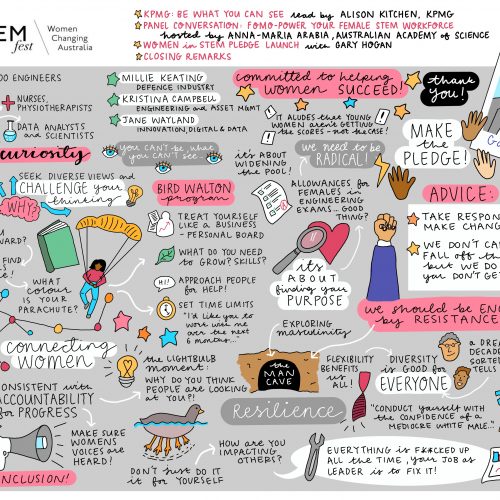 EM
fest
Women
Changing
Australia
KPMG: BE WHAT YOU CAN SEE lead by ALISON KITCHEN, KPMG
PANEL CONVERSATION: FOMO-POWER YOUR FEMALE STEM WORKFORCE
hosted by ANNA-MARIA ARABIA, AUSTRALIAN ACADEMY OF SCIENCE
WOMEN IN STEM PLEDGE LAUNCH with GARY HOGAN
CLOSING REMARKS
OO ENGINEERS
NURSES,
PHYSIOTHERAPISTS
DATA ANALYSTS
and SCIENTISTS
curiosity
SEEK DIVERSE VIEWS and
CHALLENGE your
thinking
WHY?
WARD?
FIND
LES
E!
WHAT
COLOUR
IS YOUR
PARACHUTE?
connecting
WOMEN
ONSISTENT with
ACCOUNTABILITY
for PROGRESS
MAKE SURE
WOMENS
VOICES are
HEARD!
NCLUSION!
MILLIE KEATING
DEFENCE INDUSTRY
KRISTINA CAMPBELL
ENGINEERING and ASSET MGMT
JANE WAYLAND
INNOVATION, DIGITAL & DATA
you can't be what
you can't see
BIRD WALTON
program
TREAT YOURSELF
LIKE a BUSINESS
- PERSONAL BOARD
WHAT DO YOU NEED
to GROW? SKILLS?
HI!
APPROACH PEOPLE
for HELP!
SET TIME LIMITS
"I'd like you to
work with me
over the next
6 months..."
the LIGHTBULB
moment:
WHY DO YOU THINK
PEOPLE are LOOKING
at YOU?!
DON'T JUST DO IT
it for YOURSELF
HOW are YOU
IMPACTING
OTHERS?
committed to helping
WOMEN SUCCEED!
IT ALUDES that YOUNG
WOMEN aren't GETTING
the SCORES - not the CASE!
it's ABOUT
WIDENING
the POOL!
we need to be
RADICAL!
ALLOWANCES for
FEMALES in
ENGINEERING
EXAMS - GOOD
THING?
it's
ABOUT
finding your
PURPOSE
EXPLORING
masculinity
the
MAN
CAVE
Resilience
FLEXIBILITY
BENEFITS
us ALL!
thank
you!
MAKE
the
PLEDGE!
ADVICE:
TAKE RESPON
MAKE CHANG
WE DON'T CA
FALL off th
but WE DO
YOU DON'T GE
we should be EN
by RESISTANCE
DIVERSITY
is GOOD for
EVERYONE
a DREA
DECADE
SORTE
TELLS
"CONDUCT yourself WITH
the CONFIDENCE of a
MEDIOCRE WHITE MALE.."
EVERYTHING is F*CKED UP
ALL the TIME, your JOB as
LEADER is to FIX it!